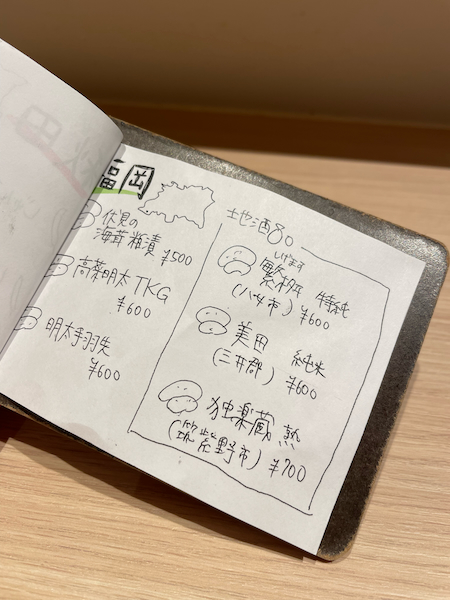 福岡
伏見の
海茸粕漬 ¥500
高菜明太TKG
¥600
明太手羽先
¥600
地酒80
しげます
繁桝 特純
(八女市) ¥600
美田 純米
(三井郡) ¥600
独楽蔵
(筑紫野市) ¥700